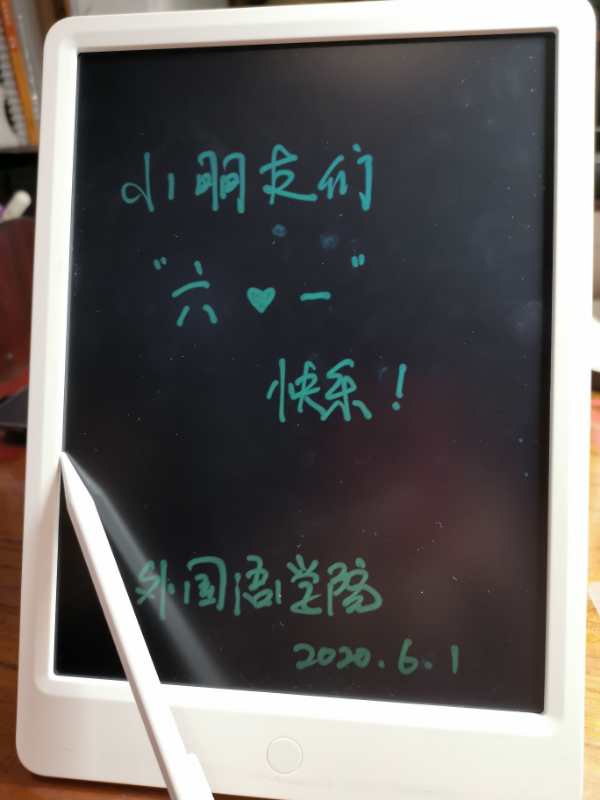 小朋友们
"六♥一"
快乐！
外国语学院
2020.6.1